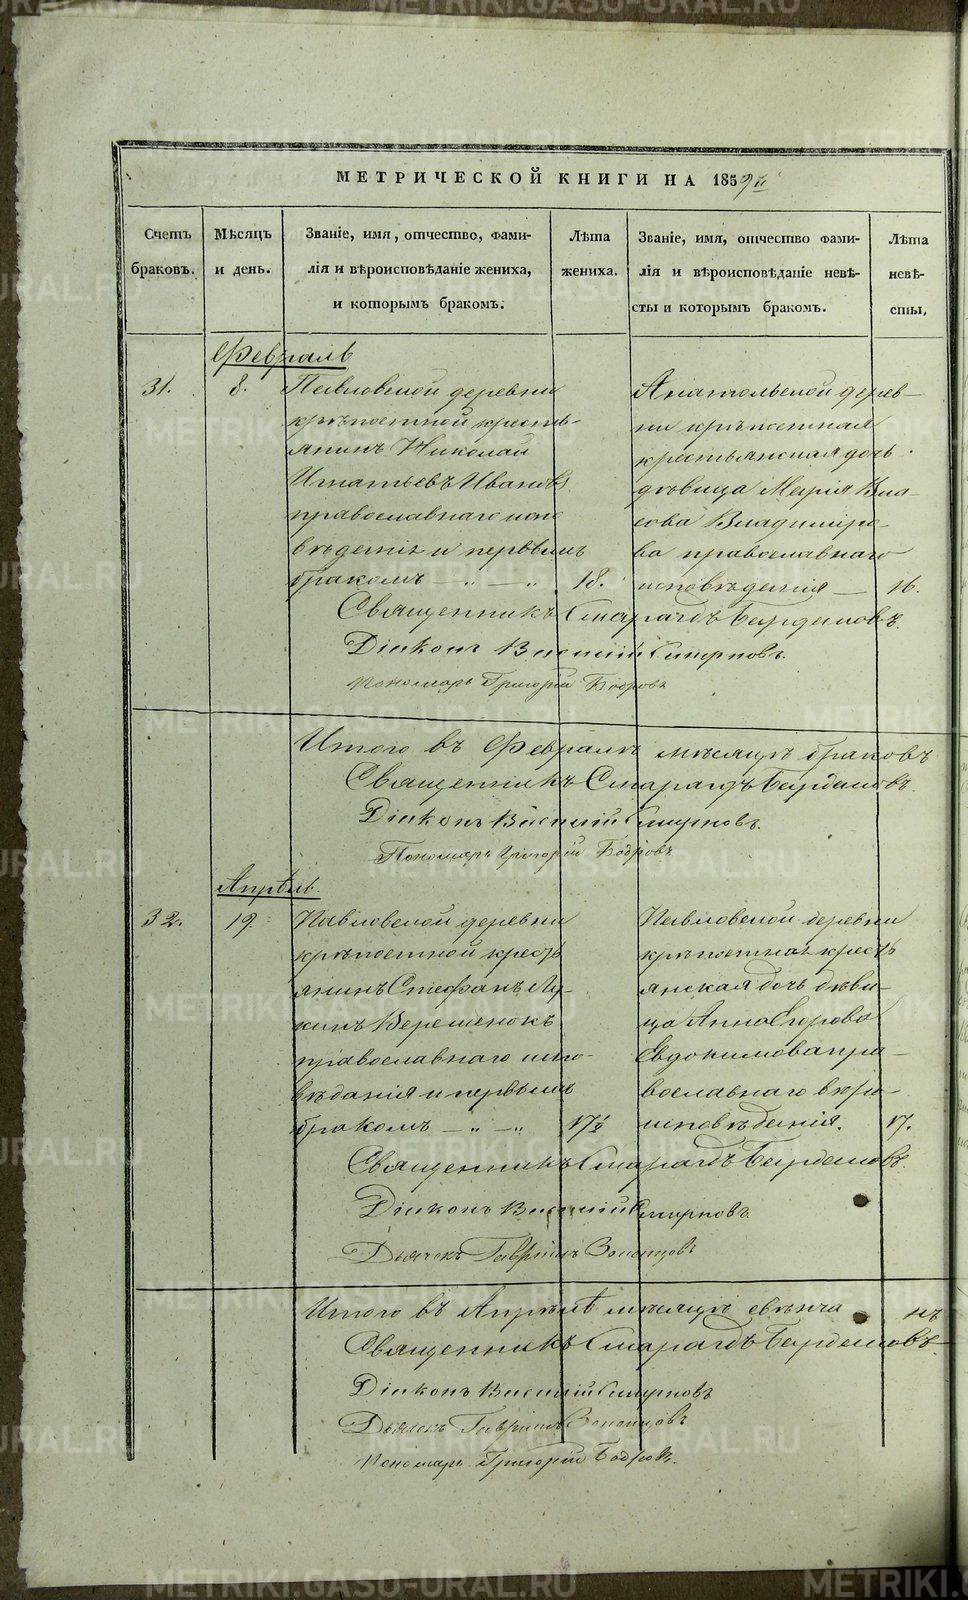 МЕТРИЧЕСКОЙ КНИГИ НА 1859й
Счетъ браковъ.
Мѣсяцъ и день.
Званіе, имя, отчество, фами-
лія и вѣроисповѣданіе жениха,
и которымъ бракомъ.
Лѣта
жениха.
Званіе, имя, отчество фами-
лія и вѣроисповѣданіе невѣ-
сты и которымъ бракомъ.
Лѣта
невѣ-
сты.
Февраль
31.
8.
Павловской деревни
крѣпостной кресть-
янинъ Николай
Игнатьевъ Ивановъ
православнаго испо
вѣденія и первымъ
бракомъ — „ — „
18.
Анатольской дерев-
ни крѣпостная
крестьянская дочь
дѣвица Марія Вла-
сова Владиміро-
ва православнаго
исповѣденія —
16.
Священникъ Смарагдъ Бардамовъ.
Діаконъ Василій Смирновъ.
Пономарь Григорій Бобровъ
Итого въ Февралѣ мѣсяцѣ браковъ
Священникъ Смарагдъ Бардамовъ.
Діаконъ Василій Смирновъ.
Пономарь Григорій Бобровъ
Апрѣль.
32.
19.
Павловской деревни
крѣпостной крест
янинъ Стефанъ Лу-
кинъ Веременокъ
православнаго испо-
вѣданія и первымъ
бракомъ — „ — „
17½
Павловской деревни
крѣпостная крест
янская дочь дѣви-
ца Анна Егорова
Евдокимова пра-
вославнаго вѣро-
исповѣданія.
17.
Священникъ Смарагдъ Бардамовъ.
Діаконъ Василій Смирновъ.
Дьячекъ Гавріилъ
Итого въ Апрѣлѣ мѣсяцѣ свѣнча нъ
Священникъ Смарагдъ Бардамовъ.
Діаконъ Василій Смирновъ
Дьячекъ Гавріилъ
Пономарь Григорій Бобровъ.
METRIKI.GASO-URAL.RU